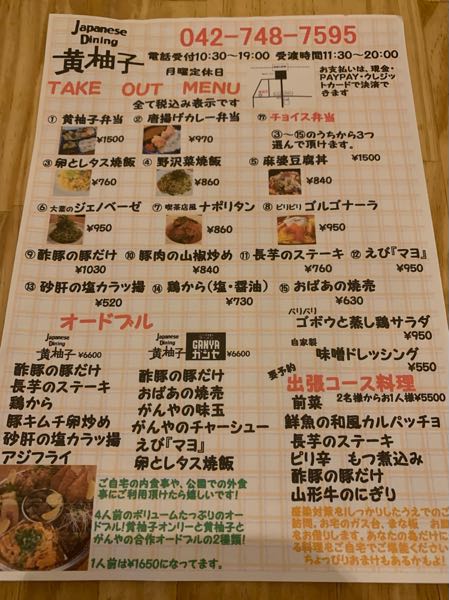 Japanese
Dining
黄柚子
042-748-7595
電話受付10:30〜19:00 受渡時間11:30〜20:00
月曜定休日
お支払いは、現金・
PAYPAY・クレジッ
トカードで決済で
きます
TAKE OUT MENU
全て税込み表示です
① 黄柚子弁当
¥1500
② 唐揚げカレー弁当
¥970
⑰ チョイス弁当
③〜⑮のうちから3つ
選んで頂けます。
¥1500
③ 卵とレタス焼飯
¥760
④ 野沢菜焼飯
¥860
⑤ 麻婆豆腐丼
¥840
⑥ 大葉のジェノベーゼ
¥950
⑦ 喫茶店風ナポリタン
¥860
⑧ ピリピリゴルゴナーラ
¥950
⑨ 酢豚の豚だけ
¥1030
⑩ 豚肉の山椒炒め
¥840
⑪ 長芋のステーキ
¥760
⑫ えび『マヨ』
¥950
⑬ 砂肝の塩カラッ揚
¥520
⑭ 鶏から(塩・醤油)
¥730
⑮ おばあの焼売
¥630
パリパリ
ゴボウと蒸し鶏サラダ
¥950
自家製
味噌ドレッシング
¥550
オードブル
Japanese
Dining
黄柚子 ¥6600
酢豚の豚だけ
長芋のステーキ
鶏から
豚キムチ卵炒め
砂肝の塩カラッ揚
アジフライ
Japanese
Dining
黄柚子
GANYA
ガンヤ
¥6600
酢豚の豚だけ
おばあの焼売
がんやの味玉
がんやのチャーシュー
えび『マヨ』
卵とレタス焼飯
要予約
出張コース料理
2名様からお1人様¥5500
前菜
鮮魚の和風カルパッチョ
長芋のステーキ
ピリ辛 もつ煮込み
酢豚の豚だけ
山形牛のにぎり
ご自宅の内食事や、公園での外食
事にご利用頂けたら嬉しいです!
4人前のボリュームたっぷりのオー
ドブル!黄柚子オンリーと黄柚子と
がんやの合作オードブルの2種類!
1人前は¥1650になってます。
感染対策をしっかりしたうえでのご
訪問。お宅のガス台、まな板 お皿
をお借りします。あなたの為だけに
る料理をご自宅でご堪能ください
ちょっぴりおまけもあるかもよ!